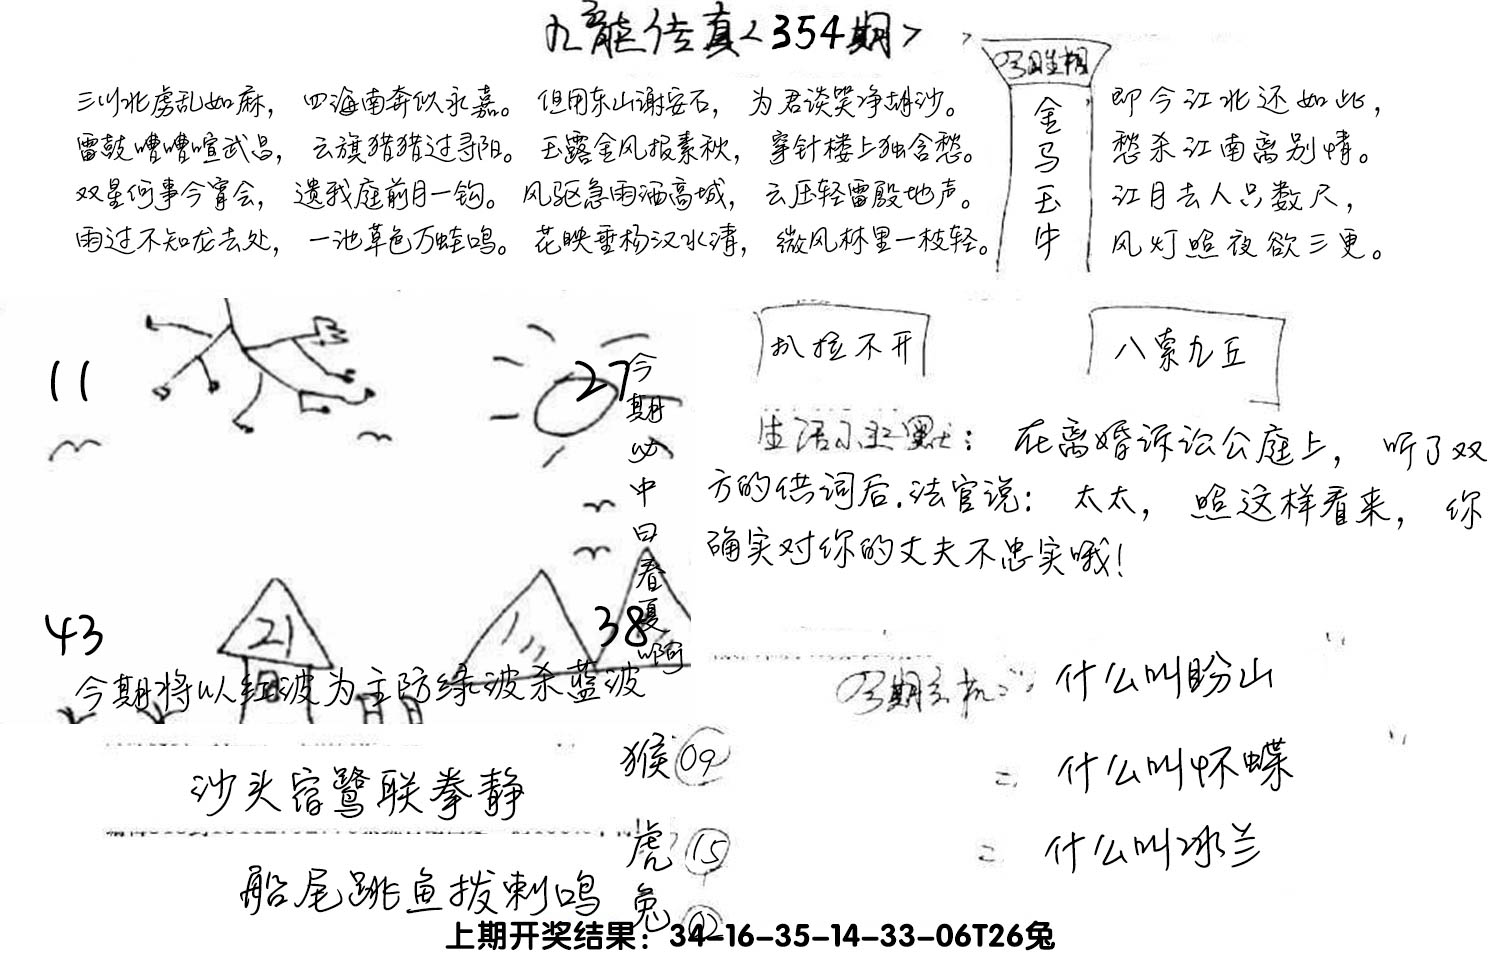 九龙传真<354期>
三川北虏乱如麻，四海南奔似永嘉。但用东山谢安石，为君谈笑净胡沙。
雷鼓嘈嘈喧武昌，云旗猎猎过寻阳。玉露金风报素秋，穿针楼上独含愁。
双星何事今宵会，遗我庭前月一钩。风驱急雨洒高城，云压轻雷殷地声。
雨过不知龙去处，一池草色万蛙鸣。花映垂杨汉水清，微风林里一枝轻。
今日生相
金
马
玉
牛
即今江北还如此，
愁杀江南离别情。
江月去人只数尺，
风灯照夜欲三更。
11
27
今期必中曰春夏啊
43
21
38
今期将以红波为主防绿波杀蓝波
扒拉不开
八索九丘
生活小幽默：在离婚诉讼公庭上，听了双
方的供词后.法官说：太太，照这样看来，你
确实对你的丈夫不忠实哦！
今期玄机：什么叫盼山
什么叫怀蝶
什么叫冰兰
沙头宿鹭联拳静
船尾跳鱼拨剌鸣
猴 09
虎 15
兔 02
上期开奖结果：34-16-35-14-33-06T26兔